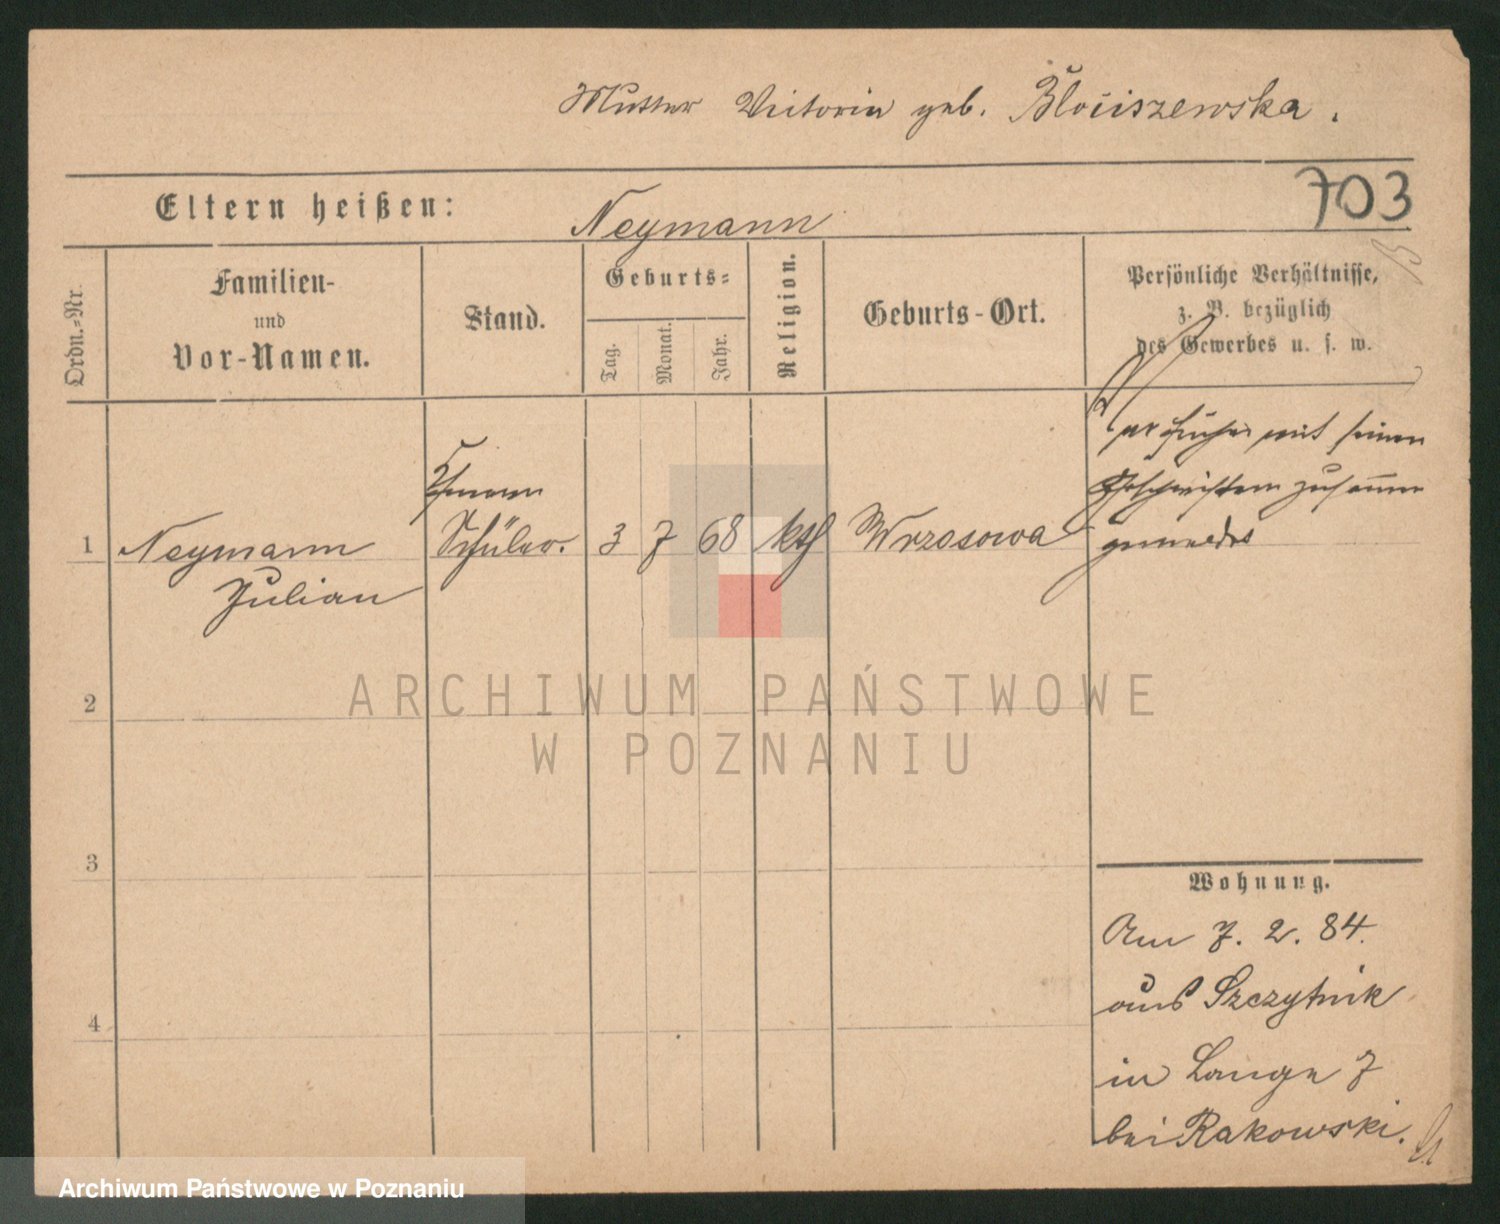 Mutter Victoria geb. Błoiiszewska.
703
Eltern heißen: Neymann
Ordn.-Nr.
Familien-
und
Vor-Namen.
Stand.
Geburts-
Tag.
Monat.
Jahr.
Religion.
Geburts-Ort.
Persönliche Verhältnisse,
z. B. bezüglich
des Gewerbes u. s. w.
1 Neymann Schüler. 3 7 68 kth Wrzosowa
Julian
war früher mit seinen
Geschwistern zusamm
gemeldet
2
3
4
Wohnung.
Am 7. 2. 84.
aus Szczytnik
in Lange 7
bei Rakowski.
ARCHIWUM PAŃSTWOWE
W POZNANIU
Archiwum Państwowe w Poznaniu